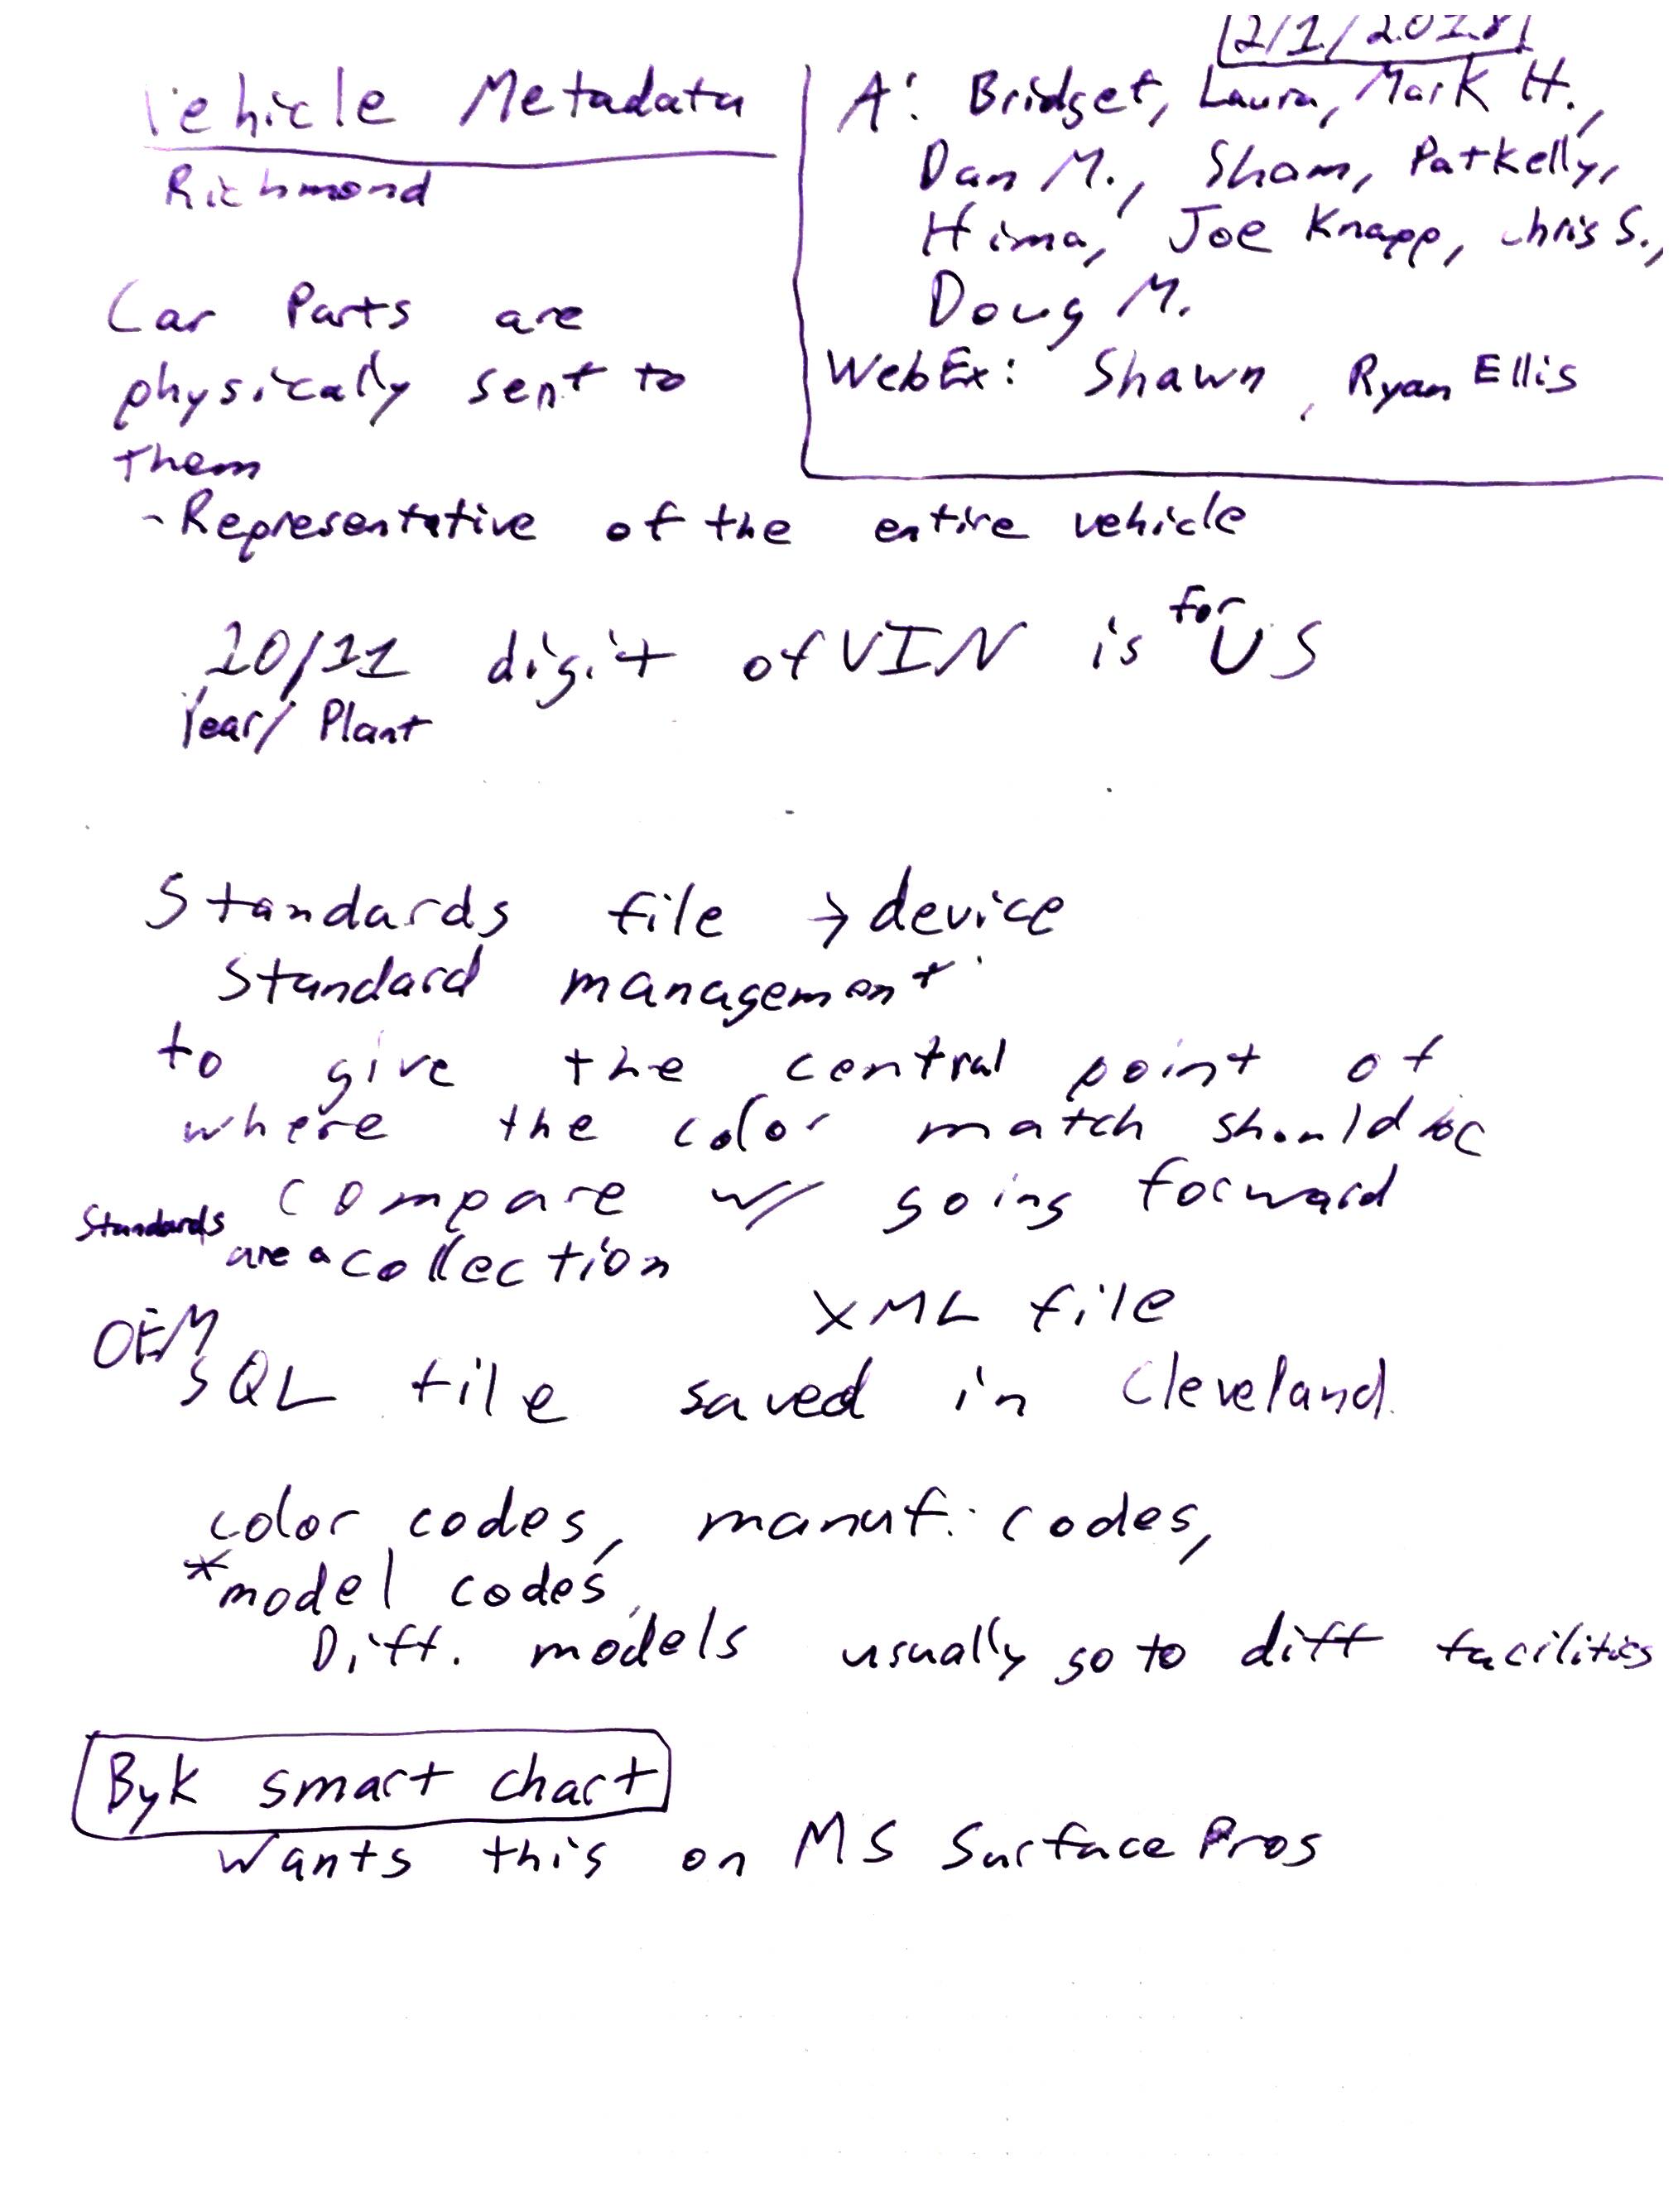 2/1/2018
Vehicle Metadata
Richmond
A: Bridget, Laura, Mark H.,
Dan M., Sham, Pat Kelly,
Hima, Joe Knapp, Chris S.,
Doug M.
WebEx: Shawn, Ryan Ellis
Car Parts are
physically sent to
them
- Representative of the entire vehicle
10/11 digit of VIN is for US
Year/Plant
Standards file → device
Standard management
to give the central point of
where the color match should be
compare w/ going forward
Standards are a collection
XML file
OEM
SQL file saved in Cleveland.
color codes, manuf. codes,
*model codes,
Diff. models usually go to diff facilities
Byk smart chart
Wants this on MS Surface Pros